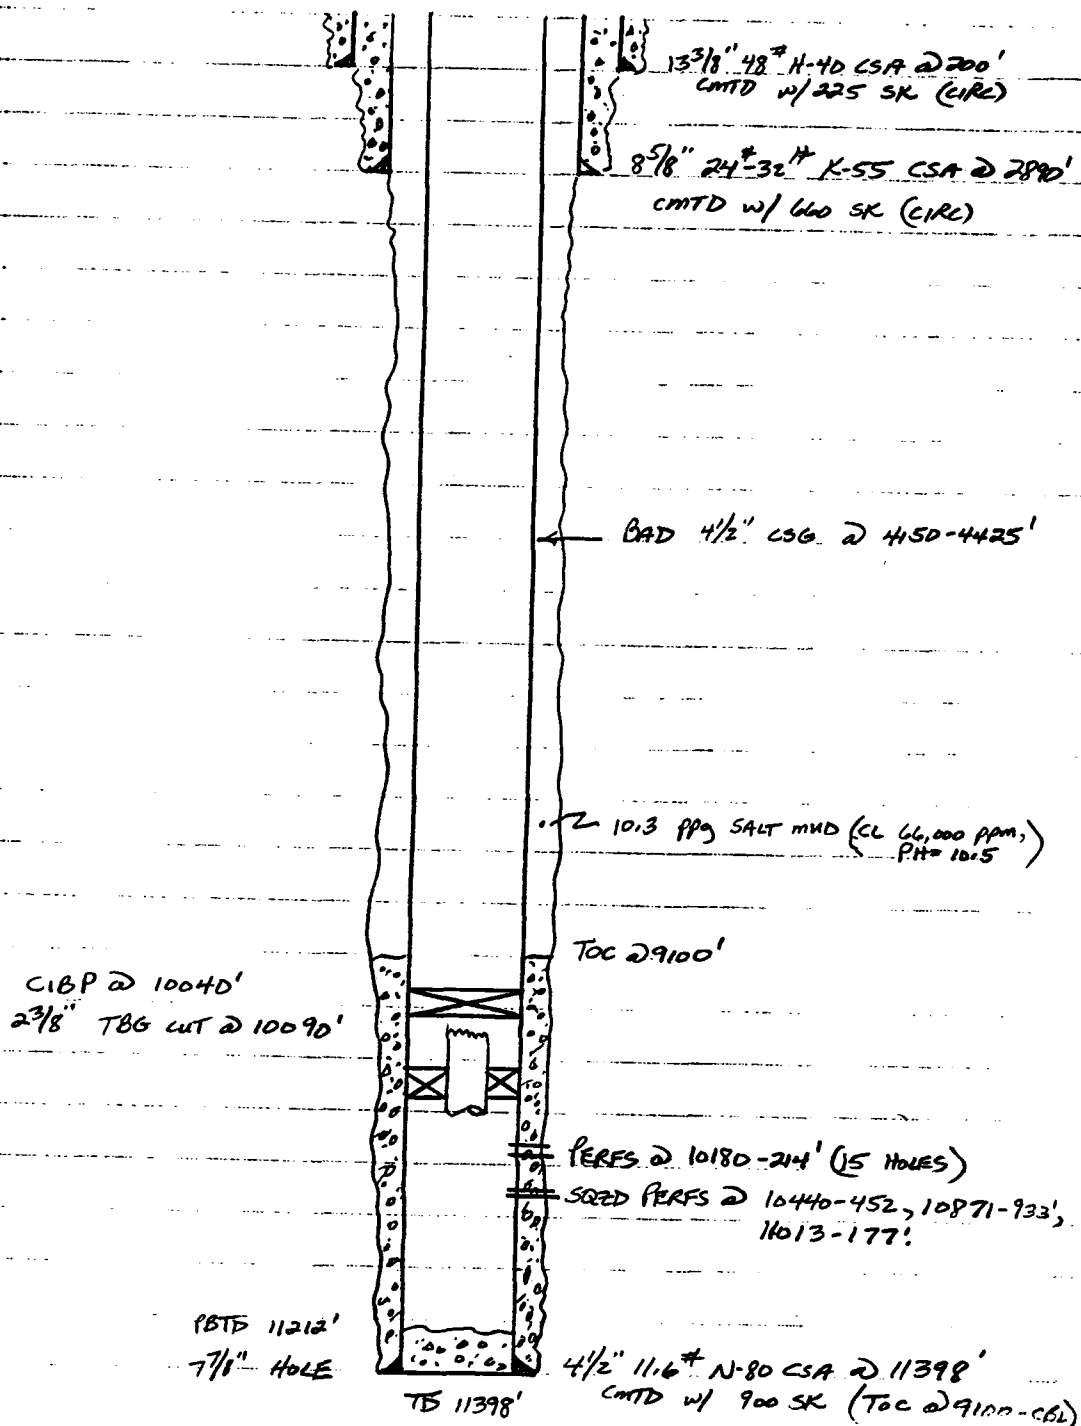 13 3/8" 48# H-40 CSA @ 200'
CMTD w/ 225 SK (CIRC)
8 5/8" 24#-32# K-55 CSA @ 2890'
CMTD w/ 660 SK (CIRC)
BAD 4 1/2" CSG @ 4150-4425'
10.3 ppg SALT MUD (CL 66,000 ppm,
PH= 10.5)
TOC @ 9100'
CIBP @ 10040'
2 3/8" TBG CUT @ 10090'
PERFS @ 10180-214' (15 HOLES)
SQZD PERFS @ 10440-452, 10871-933',
11013-177'.
PBTD 11212'
7 7/8" HOLE
4 1/2" 11.6# N-80 CSA @ 11398'
CMTD w/ 900 SK (TOC @ 9100-CBL)
TD 11398'